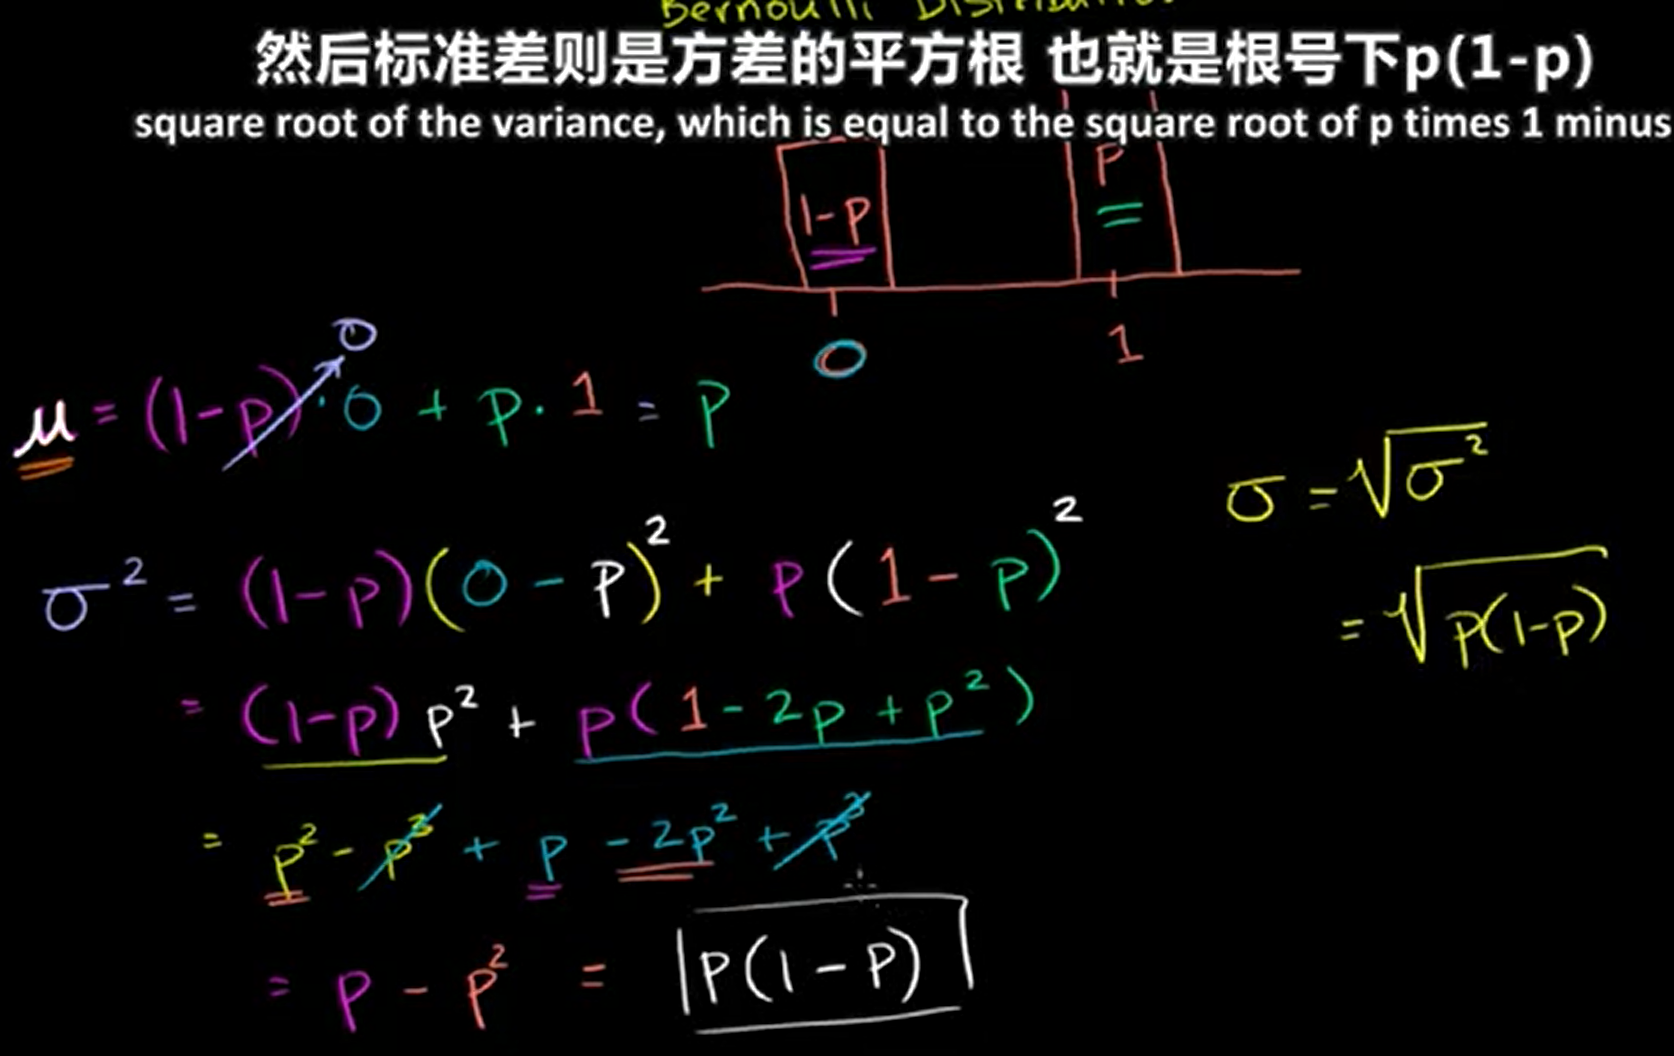 Bernoulli Distributio
然后标准差则是方差的平方根 也就是根号下p(1-p)
square root of the variance, which is equal to the square root of p times 1 minus
1-p
P
0
1
μ = (1-p)·0 + p·1 = p
0
σ = √σ²
σ² = (1-p)(0-p)² + p(1-p)²
= √p(1-p)
= (1-p)p² + p(1-2p+p²)
= p² - p³ + p - 2p² + p³
= p - p² = p(1-p)